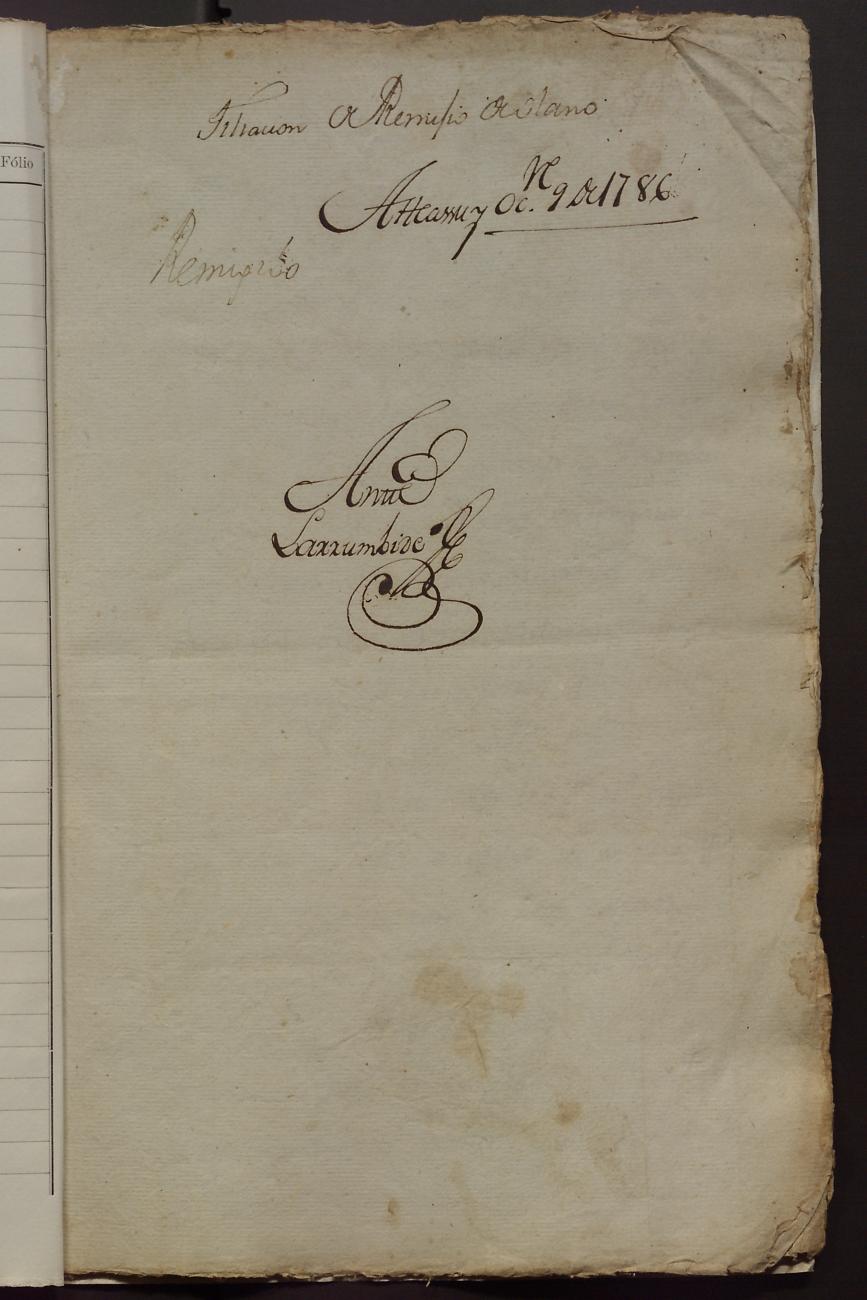 Fólio
Filiacion de Remisio de Olano
Atteassu y Oc.re 9 de 1786
Remigio
Ante
Larrumbide